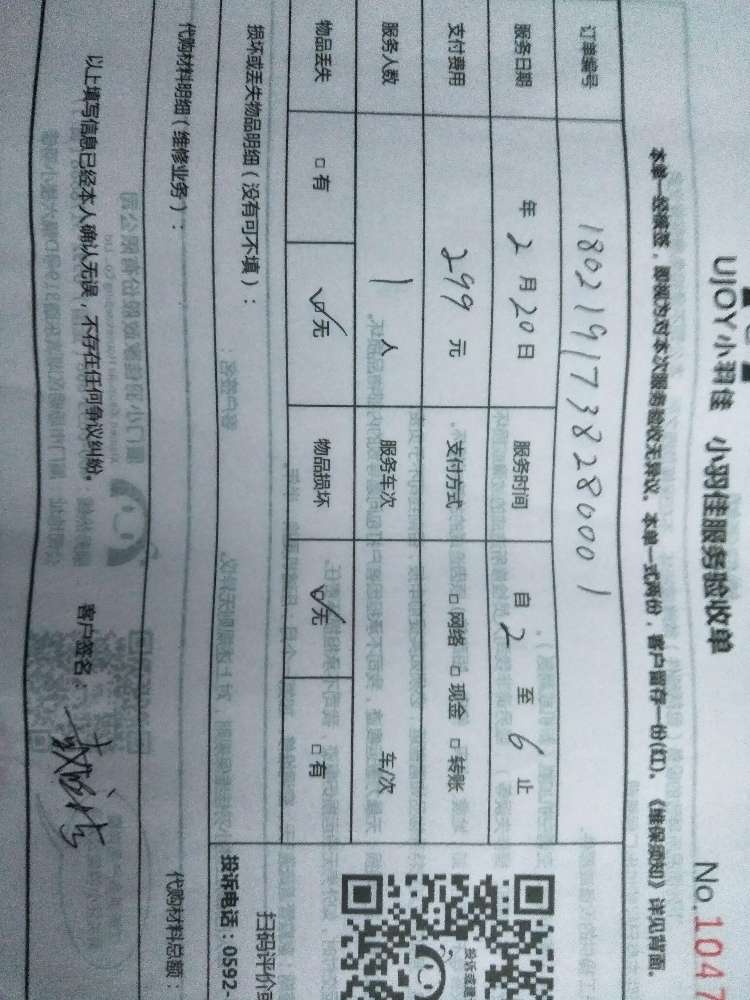 UJOY小羽佳 小羽佳服务验收单
No.1047
本单一经接签，即视为对本次服务验收无异议。本单一式两份，客户留存一份(红)。《维保须知》详见背面。
订单编号 180219173828000 1
服务日期 年 2 月 20 日 服务时间 自 2 至 6 止
支付费用 299 元 支付方式 □ 网络 □ 现金 □ 转账
服务人数 1 人 服务车次 车/次
物品丢失 □ 有 ☑ 无 物品损坏 ☑ 无 □ 有
损坏或丢失物品明细（没有可不填）：
扫码评价
投诉电话：0592-
代购材料明细（维修业务）：
代购材料总额：
以上填写信息已经本人确认无误，不存在任何争议纠纷。 客户签名：